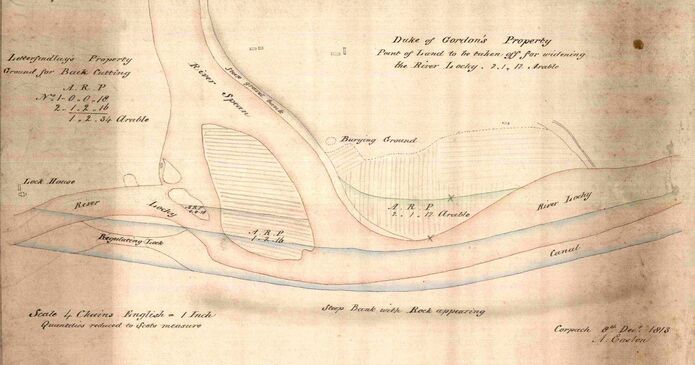 Letterfindlay's Property
Ground for Back Cutting
A. R. P
No. 1 - 0 - 0 - 18
2 - 1 - 2 - 16
1 - 2 - 34 Arable
Duke of Gordon's Property
Point of Land to be taken off for widening
the River Lochy . 2 . 1 . 12 Arable
River Spean
Burying Ground
Lock House
River Lochy
A. R. P
1 - 2 - 16
A. R. P
2 - 1 - 12 Arable
River Lochy
Regulating Lock
Canal
Scale 4 Chains English = 1 Inch
Quantities reduced to Scots measure
Steep Bank with Rock appearing
Corpach 8th Decr. 1813
A. Easton